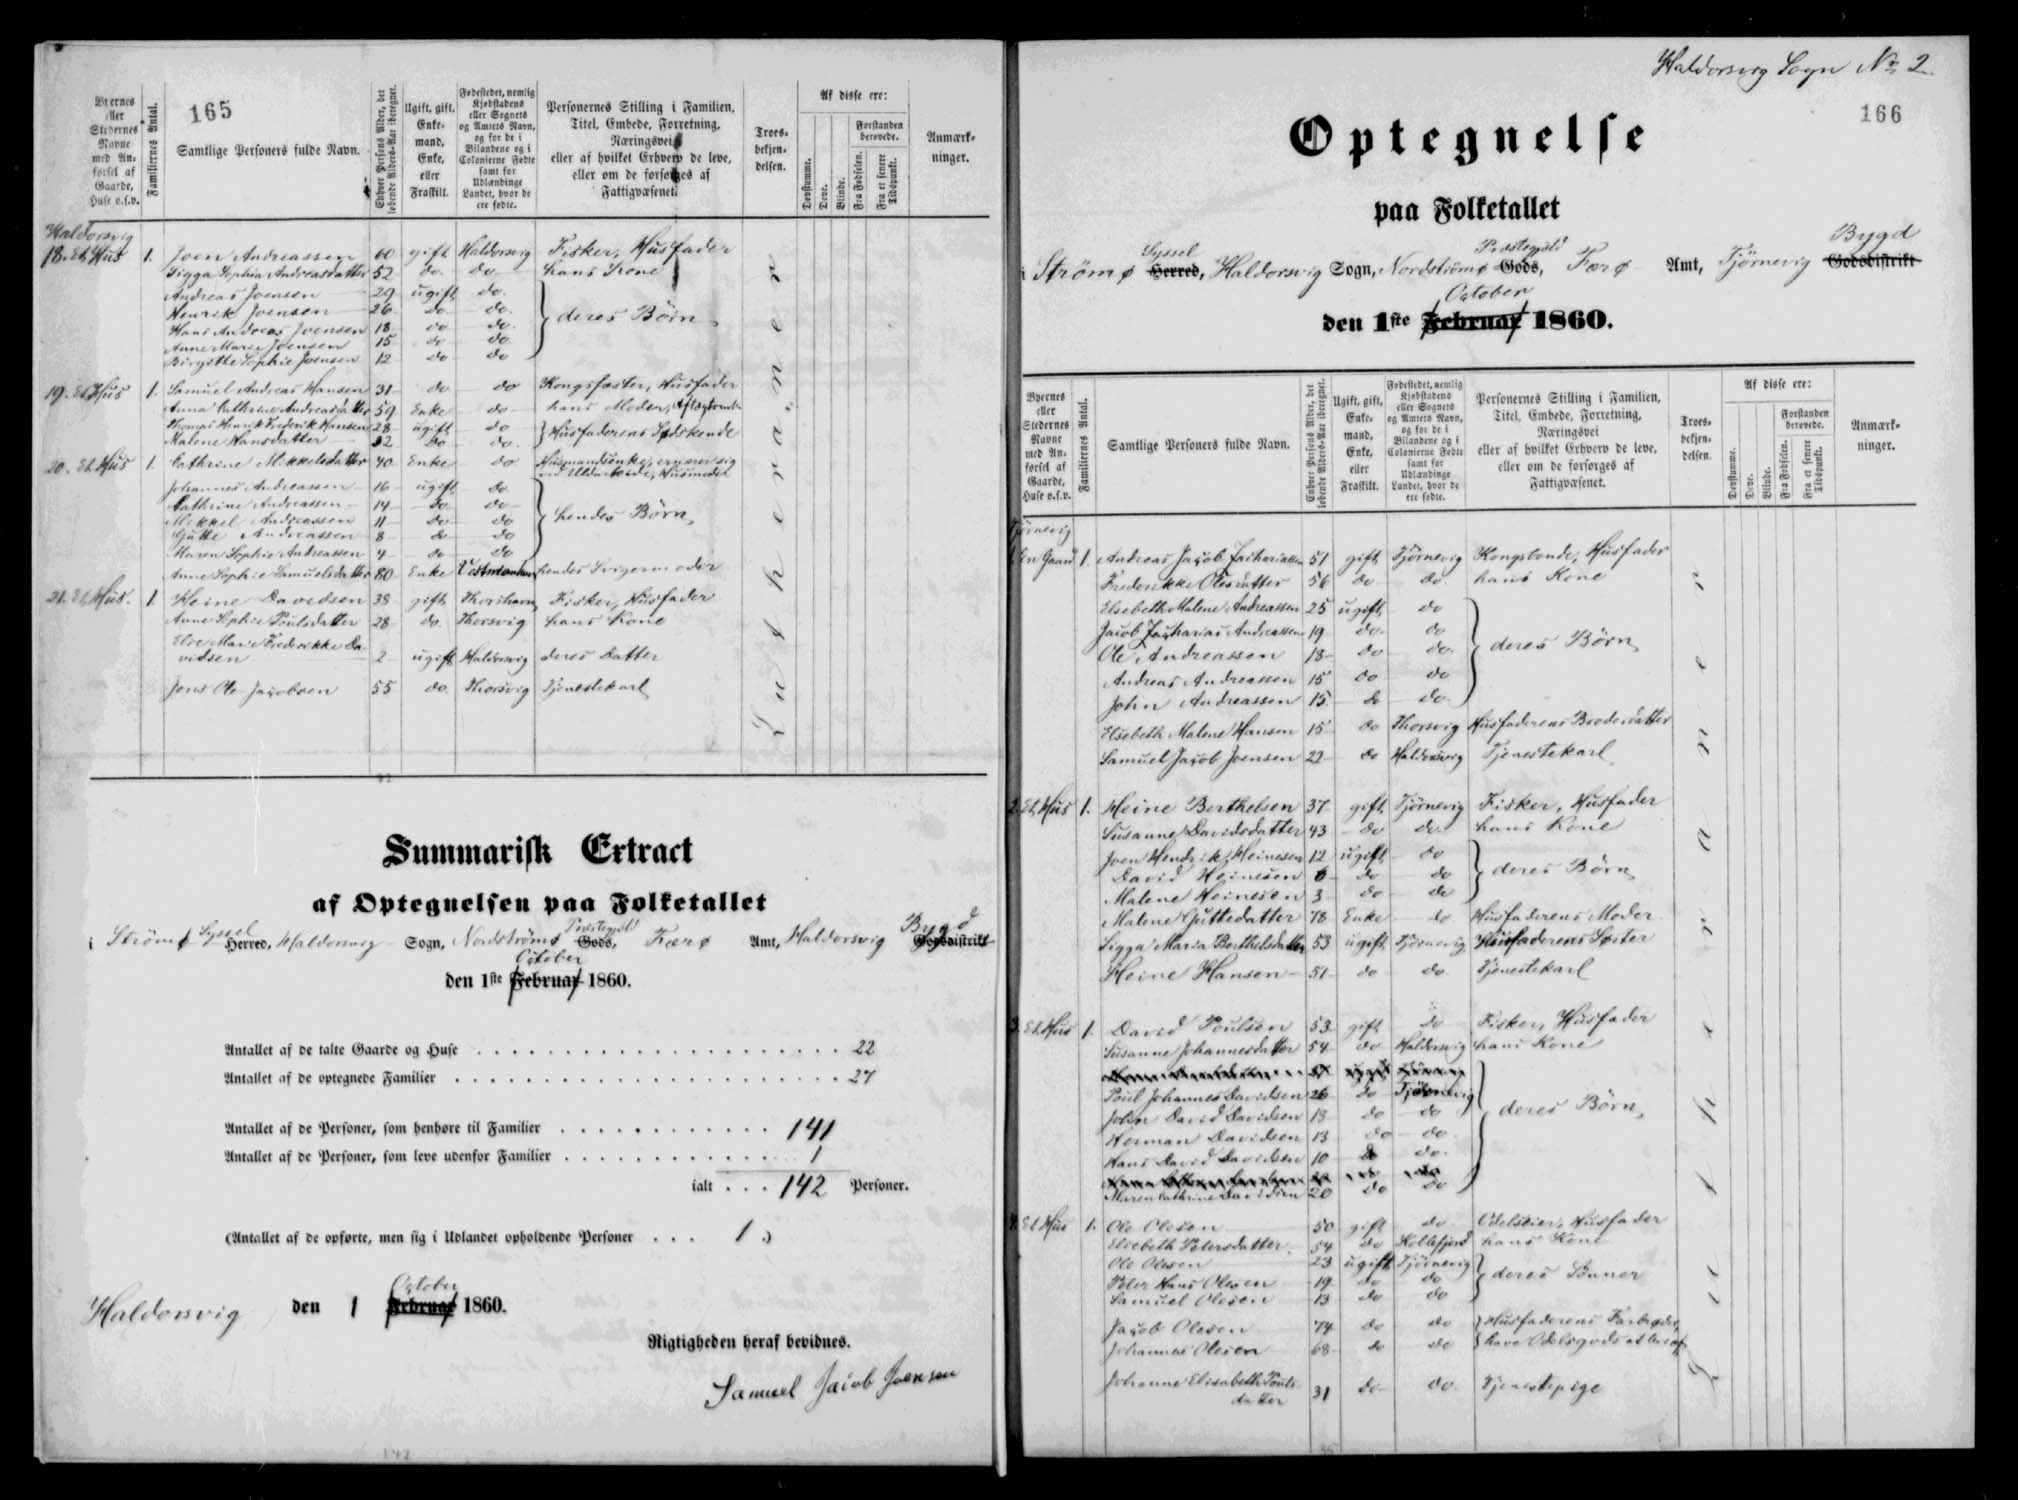 165
Byernes eller Stedernes Navne med Anførsel af Gaarde, Huse o.s.v.
Familiernes Antal.
Samtlige Personers fulde Navn.
Enhver Persons Alder, det løbende Alders-Aar iberegnet.
Ugift, gift, Enkemand, Enke, eller Fraskilt.
Fødestedet, nemlig Kjøbstadens eller Sognets og Amtets Navn, og for de i Bilandene og i Colonierne Fødte samt for Udlændinge Landet, hvor de ere fødte.
Personernes Stilling i Familien, Titel, Embede, Forretning, Næringsvei eller af hvilket Erhverv de leve, eller om de forsørges af Fattigvæsenet.
Troesbekjendelsen.
Af disse ere:
Døvstumme.
Døve.
Blinde.
Forstanden berøvede.
Fra Fødselen.
Fra et senere Tidspunkt.
Anmærkninger.
Haldorsvig
18. Et Hus 1. Joen Andreassen 60 gift Haldorsvig Fisker, Husfader
Sigga Sophia Andreasdatter 52 do. do hans Kone
Andreas Joensen 29 ugift do.
Henrik Joensen 26 do do. } deres Børn
Hans Andreas Joensen 18 do do.
Anne Marie Joensen 15 do do.
Birgithe Sophie Joensen 12 do do
19. Et Hus 1. Samuel Andreas Hansen 31 do do Kongsfæster, Husfader
Anna Cathrine Andreasdatter 59 Enke do hans Moder,
Thomas Henrik Frederik Hansen 28 ugift do } Husfaderens Sødskende
Malene Hansdatter 22 do do.
20. Et Hus 1. Cathrine Mikkelsdatter 40 Enke do Husmandsenke, ernærer sig
ved Uldarbeide, Husmoder
Johannes Andreassen 16 ugift do
Cathrine Andreassen 14 do do
Mikkel Andreassen 11 do do } hendes Børn
Gutte Andreassen 8 do do
Maren Sophie Andreassen 4 do do
Anne Sophie Samuelsdatter 80 Enke Vestmanhavn hendes Svigermoder
21. Et Hus. 1. Heine Davidsen 38 gift Thorshavn Fisker, Husfader
Anne Sophie Poulsdatter 28 do. Thorsvig hans Kone
Else Marie Frederikke Da-
vidsen 2 ugift Haldorsvig deres Datter
Jens Ole Jacobsen 55 do. Thorsvig Tjenestekarl
Lutheraner
Summarisk Extract
af Optegnelsen paa Folketallet
i Strømø Syssel Herred, Haldorsvig Sogn, Nordstrømø Præstegjeld Gods, Færø Amt, Haldorsvig Bygd Godsdistrikt
October
den 1ste Februar 1860.
Antallet af de talte Gaarde og Huse 22
Antallet af de optegnede Familier 27
Antallet af de Personer, som henhøre til Familier 141
Antallet af de Personer, som leve udenfor Familier 1
ialt 142 Personer.
(Antallet af de opførte, men sig i Udlandet opholdende Personer 1.)
October
Haldorsvig, den 1 Februar 1860.
Rigtigheden heraf bevidnes.
Samuel Jacob Joensen
142
Haldorsvig Sogn No 2.
166
Optegnelse
paa Folketallet
i Strømø Syssel Herred, Haldorsvig Sogn, Nordstrømø Præstegjeld Gods, Færø Amt, Tjørnevig Bygd Godsdistrikt
October
den 1ste Februar 1860.
Byernes eller Stedernes Navne med Anførsel af Gaarde, Huse o.s.v.
Familiernes Antal.
Samtlige Personers fulde Navn.
Enhver Persons Alder, det løbende Alders-Aar iberegnet.
Ugift, gift, Enkemand, Enke, eller Fraskilt.
Fødestedet, nemlig Kjøbstadens eller Sognets og Amtets Navn, og for de i Bilandene og i Colonierne Fødte samt for Udlændinge Landet, hvor de ere fødte.
Personernes Stilling i Familien, Titel, Embede, Forretning, Næringsvei eller af hvilket Erhverv de leve, eller om de forsørges af Fattigvæsenet.
Troesbekjendelsen.
Af disse ere:
Døvstumme.
Døve.
Blinde.
Forstanden berøvede.
Fra Fødselen.
Fra et senere Tidspunkt.
Anmærkninger.
Tjørnevig
1. En Gaard 1. Andreas Jacob Zachariassen 51 gift Tjørnevig Kongsbonde, Husfader
Frederikke Olesdatter 56 do do. hans Kone
Elsebeth Malene Andreassen 25 ugift do
Jacob Zacharias Andreassen 19 do. do
Ole Andreassen 18 do do. } deres Børn
Andreas Andreassen 15 do do
John Andreassen 15 do do.
Elsebeth Malene Hansen 15 do Thorsvig Husfaderens Broderdatter
Samuel Jacob Joensen 22 do Haldorsvig Tjenestekarl
2. Et Hus 1. Heine Berthelsen 37 gift Tjørnevig Fisker, Husfader
Susanne Davidsdatter 43 do do. hans Kone
Joen Hendrik Heinesen 12 ugift do
David Heinesen 6 do do } deres Børn
Malene Heinesen 3 do do
Malene Guttedatter 78 Enke do Husfaderens Moder
Sigga Maria Berthelsdatter 53 ugift Tjørnevig Husfaderens Søster
Heine Hansen 51 do do Tjenestekarl
3. Et Hus 1. David Poulsen 53 gift do Fisker, Husfader
Susanne Johannesdatter 54 do Haldorsvig hans Kone
Poul Johannes Davidsen 26 do Tjørnevig
John David Davidsen 18 do do } deres Børn
Herman Davidsen 13 do do.
Hans David Davidsen 10 do do.
Maren Cathrine Davidsen 20 do do
4. Et Hus 1. Ole Olesen 50 gift do Odelseier, Husfader
Elsebeth Petersdatter 54 do Kollefjord hans Kone
Ole Olesen 23 ugift Tjørnevig
Peter Hans Olesen 19 do do } deres Sønner
Samuel Olesen 13 do do
Jacob Olesen 74 do do } Husfaderens Farbrødre,
Johannes Olesen 68 do do } have Odelsgods at leve af
Johanne Elisabeth Pouls-
datter 31 do do. Tjenestepige
Lutheraner